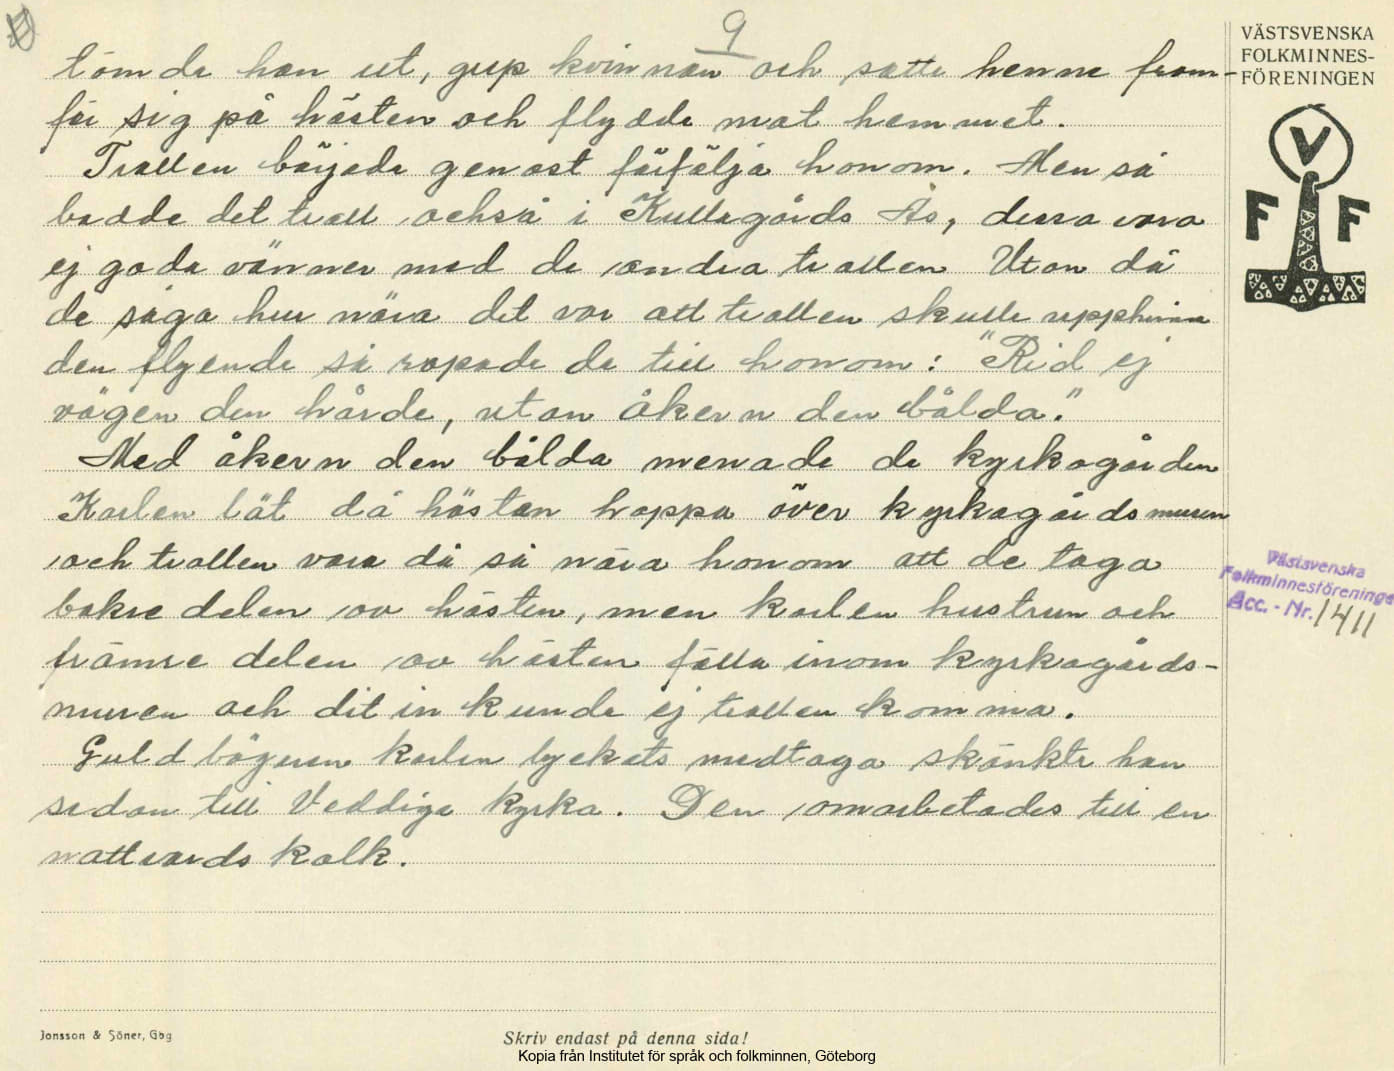 9
tömde han ut, grep kvinnan och satte henne fram-
för sig på hästen och flydde mot hemmet.
Trollen började genast förfölja honom. Men så
bodde det troll också i Kullagårds Ås, dessa voro
ej goda vänner med de andra trollen Utan då
de sågo hur nära det var att trollen skulle upphinna
den flyende så ropade de till honom: "Rid ej
vägen den hårde, utan åkern den bålda."
Med åkern den bålda menade de kyrkogården
Karlen lät då hästen hoppa över kyrkogårdsmuren
och trollen voro då så nära honom att de togo
bakre delen av hästen, men karlen hustrun och
främre delen av hästen fälla inom kyrkogårds-
muren och dit in kunde ej trollen komma.
Guldbägaren karlen lyckats medtaga skänkte han
sedan till Veddige kyrka. Den omarbetades till en
nattvardskalk.
VÄSTSVENSKA
FOLKMINNES-
FÖRENINGEN
V
F F
Västsvenska
Folkminnesföreningen
Acc. - Nr. 1411
Jonsson & Söner, Gbg
Skriv endast på denna sida!
Kopia från Institutet för språk och folkminnen, Göteborg